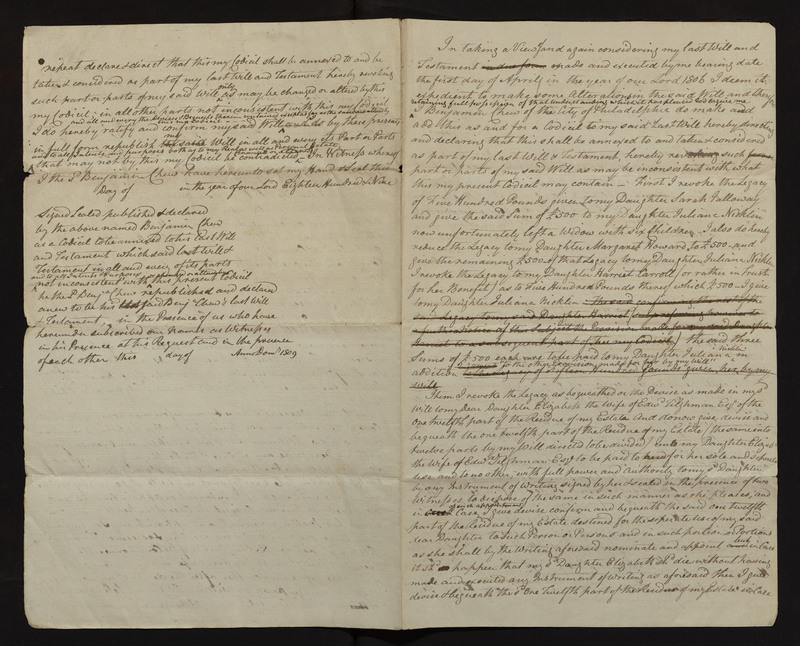 repeat declare & direct that this my Codicil shall be annexed to and be
taken & considered as part of my last Will and Testament hereby revoking
such part or parts of my said Will only as may be changed or altered by this
my Codicil; in all other parts not inconsistent with this my Codicil
I do hereby ratify and confirm my said Will and by these presents
in full form republish my said Will in all and every its Part or Parts
that may not by this my Codicil be contradicted. In Witness whereof
I the sd. Benjamin Chew have hereunto set my Hand & Seal this
Day of in the year of our Lord Eighteen Hundred & Nine
Signed Sealed published & declared
by the above named Benjamin Chew
as a Codicil to be annexed to his last Will
and Testament which said last Will &
Testament in all and every of its parts
not inconsistent with this present Codicil
he the sd. Benjn. Chew republished and declared
anew to be his said Benj. Chew's last Will
& Testament in the Presence of us who have
hereunder subscribed our Names as Witnesses
in his Presence at his Request and in the presence
of each other this day of Anno Dom. 1809
In taking a View and again considering my last Will and
Testament in due form made and executed by me bearing date
the first day of April in the year of our Lord 1806 I deem it
expedient to make some Alterations in the said Will, and therefore
retaining full possession of that understanding
I Benjamin Chew of the City of Philadelphia do make and
add this as and for a Codicil to my said Last Will hereby directing
and declaring that this shall be annexed to and taken & considered
as part of my last Will & Testament, hereby revoking such
part or parts of my said Will as may be inconsistent with what
this my present Codicil may contain — First I revoke the Legacy
of Five Hundred Pounds given to my Daughter Sarah Galloway
and give the said Sum of £500 to my Daughter Juliana Nicklin
now unfortunately left a Widow with Six Children. I also do hereby
reduce the Legacy to my Daughter Margaret Howard to £500 and
give the remaining £500 of that Legacy to my Daughter Juliana Nicklin
I revoke the Legacy to my Daughter Harriet Carroll (or rather in trust
for her Benefit) as to Five Hundred Pounds thereof which £500 I give
to my Daughter Juliana Nicklin
The said three
Sums of £500 each are to be paid to my Daughter Juliana Nicklin in
addition to the other provisions made for her by my Will
Item I revoke the Legacy as bequeathed or the Devise as made in my sd.
Will to my dear Daughter Elizabeth the Wife of Edwd. Tilghman Esqr. of the
One Twelfth part of the Residue of my Estate and do now give devise and
bequeath the one twelfth part of the Residue of my Estate (the same into
twelve parts by my Will directed to be divided) unto my Daughter Elizabeth
the Wife of Edwd. Tilghman Esqr. to be paid to her for her sole and separate
use and to no other; with full power and Authority to my sd. Daughter
by any Instrument of Writing signed by her & sealed in the presence of two
Witnesses to dispose of the same in such manner as she pleases, and
in Case of such appointment I give devise confirm and bequeath the said one twelfth
part of the Residue of my Estate destined for the separate use of my said
dear Daughter to such Person or Persons and in such portion or Portions
as she shall by the Writing aforesaid nominate and appoint but in Case
it sd. happen that my sd. Daughter Elizabeth sd. die without having
made and executed any Instrument of writing as aforesaid then I give
devise & bequeath the sd. One Twelfth part of the Residue of my Estate in Case